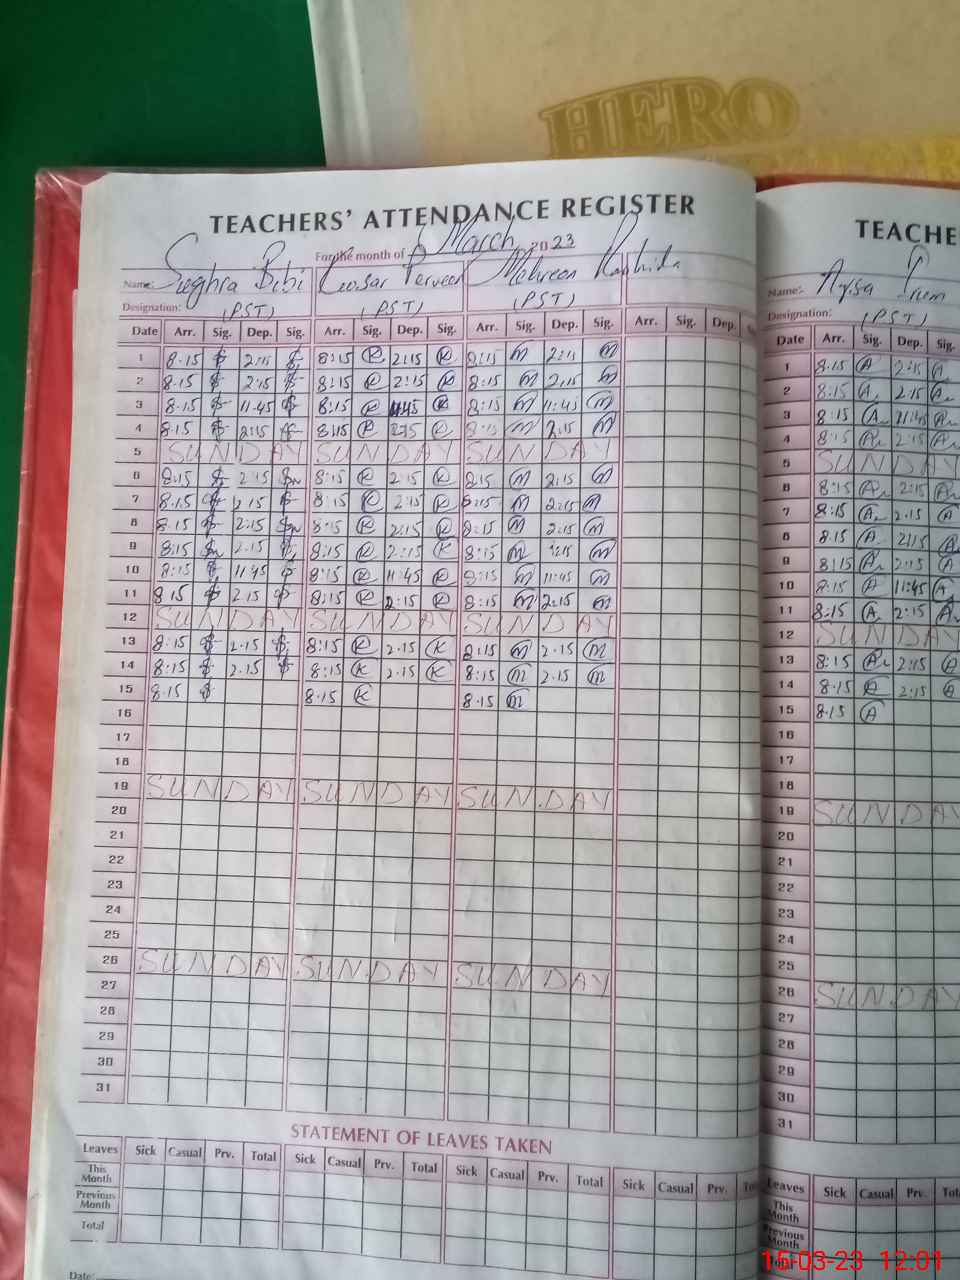 HERO
TEACHERS' ATTENDANCE REGISTER
For the month of March, 2023
Name: Sughra Bibi Kousar Perveen Mehreen Rashida
Designation: (PST) (PST) (PST)
Date Arr. Sig. Dep. Sig. Arr. Sig. Dep. Sig. Arr. Sig. Dep. Sig. Arr. Sig. Dep.
1 8.15 2:15 8:15 K 2:15 K 8:15 m 2:15 m
2 8.15 2:15 8:15 K 2:15 K 8:15 m 2:15 m
3 8.15 11.45 8:15 K 11:45 K 8:15 m 11:45 m
4 8.15 2:15 8:15 K 2:15 K 8:15 m 2:15 m
5 SUNDAY SUNDAY SUNDAY
6 8:15 2.15 8:15 K 2.15 K 8:15 m 2:15 m
7 8.15 2.15 8:15 K 2:15 K 8:15 m 2:15 m
8 8.15 2:15 8:15 K 2:15 K 8:15 m 2:15 m
9 8:15 2.15 8:15 K 2:15 K 8:15 m 2:15 m
10 8:15 11:45 8:15 K 11:45 K 8:15 m 11:45 m
11 8.15 2.15 8:15 K 2:15 K 8:15 m 2:15 m
12 SUNDAY SUNDAY SUNDAY
13 8:15 2.15 8:15 K 2.15 K 8:15 m 2.15 m
14 8:15 2.15 8:15 K 2.15 K 8:15 m 2.15 m
15 8.15 8.15 K 8.15 m
16
17
18
19 SUNDAY SUNDAY SUNDAY
20
21
22
23
24
25
26 SUNDAY SUNDAY SUNDAY
27
28
29
30
31
STATEMENT OF LEAVES TAKEN
Leaves Sick Casual Prv. Total Sick Casual Prv. Total Sick Casual Prv. Total Sick Casual Prv.
This Month
Previous Month
Total
Date:
TEACHE
Name:- Aysa Irum
Designation: (PST)
Date Arr. Sig. Dep. Sig.
1 8.15 A 2:15 A
2 8:15 A 2.15 A
3 8:15 A 11:45 A
4 8:15 A 2:15 A
5 SUNDAY
6 8:15 A 2:15 A
7 8:15 A 2.15 A
8 8.15 A 2:15 A
9 8:15 A 2:15 A
10 8:15 A 11:45 A
11 8:15 A 2:15 A
12 SUNDAY
13 8:15 A 2:15 A
14 8.15 A 2:15 A
15 8.15 A
16
17
18
19 SUNDAY
20
21
22
23
24
25
26 SUNDAY
27
28
29
30
31
Leaves Sick Casual Prv.
This Month
Previous Month
15-03-23 12:01